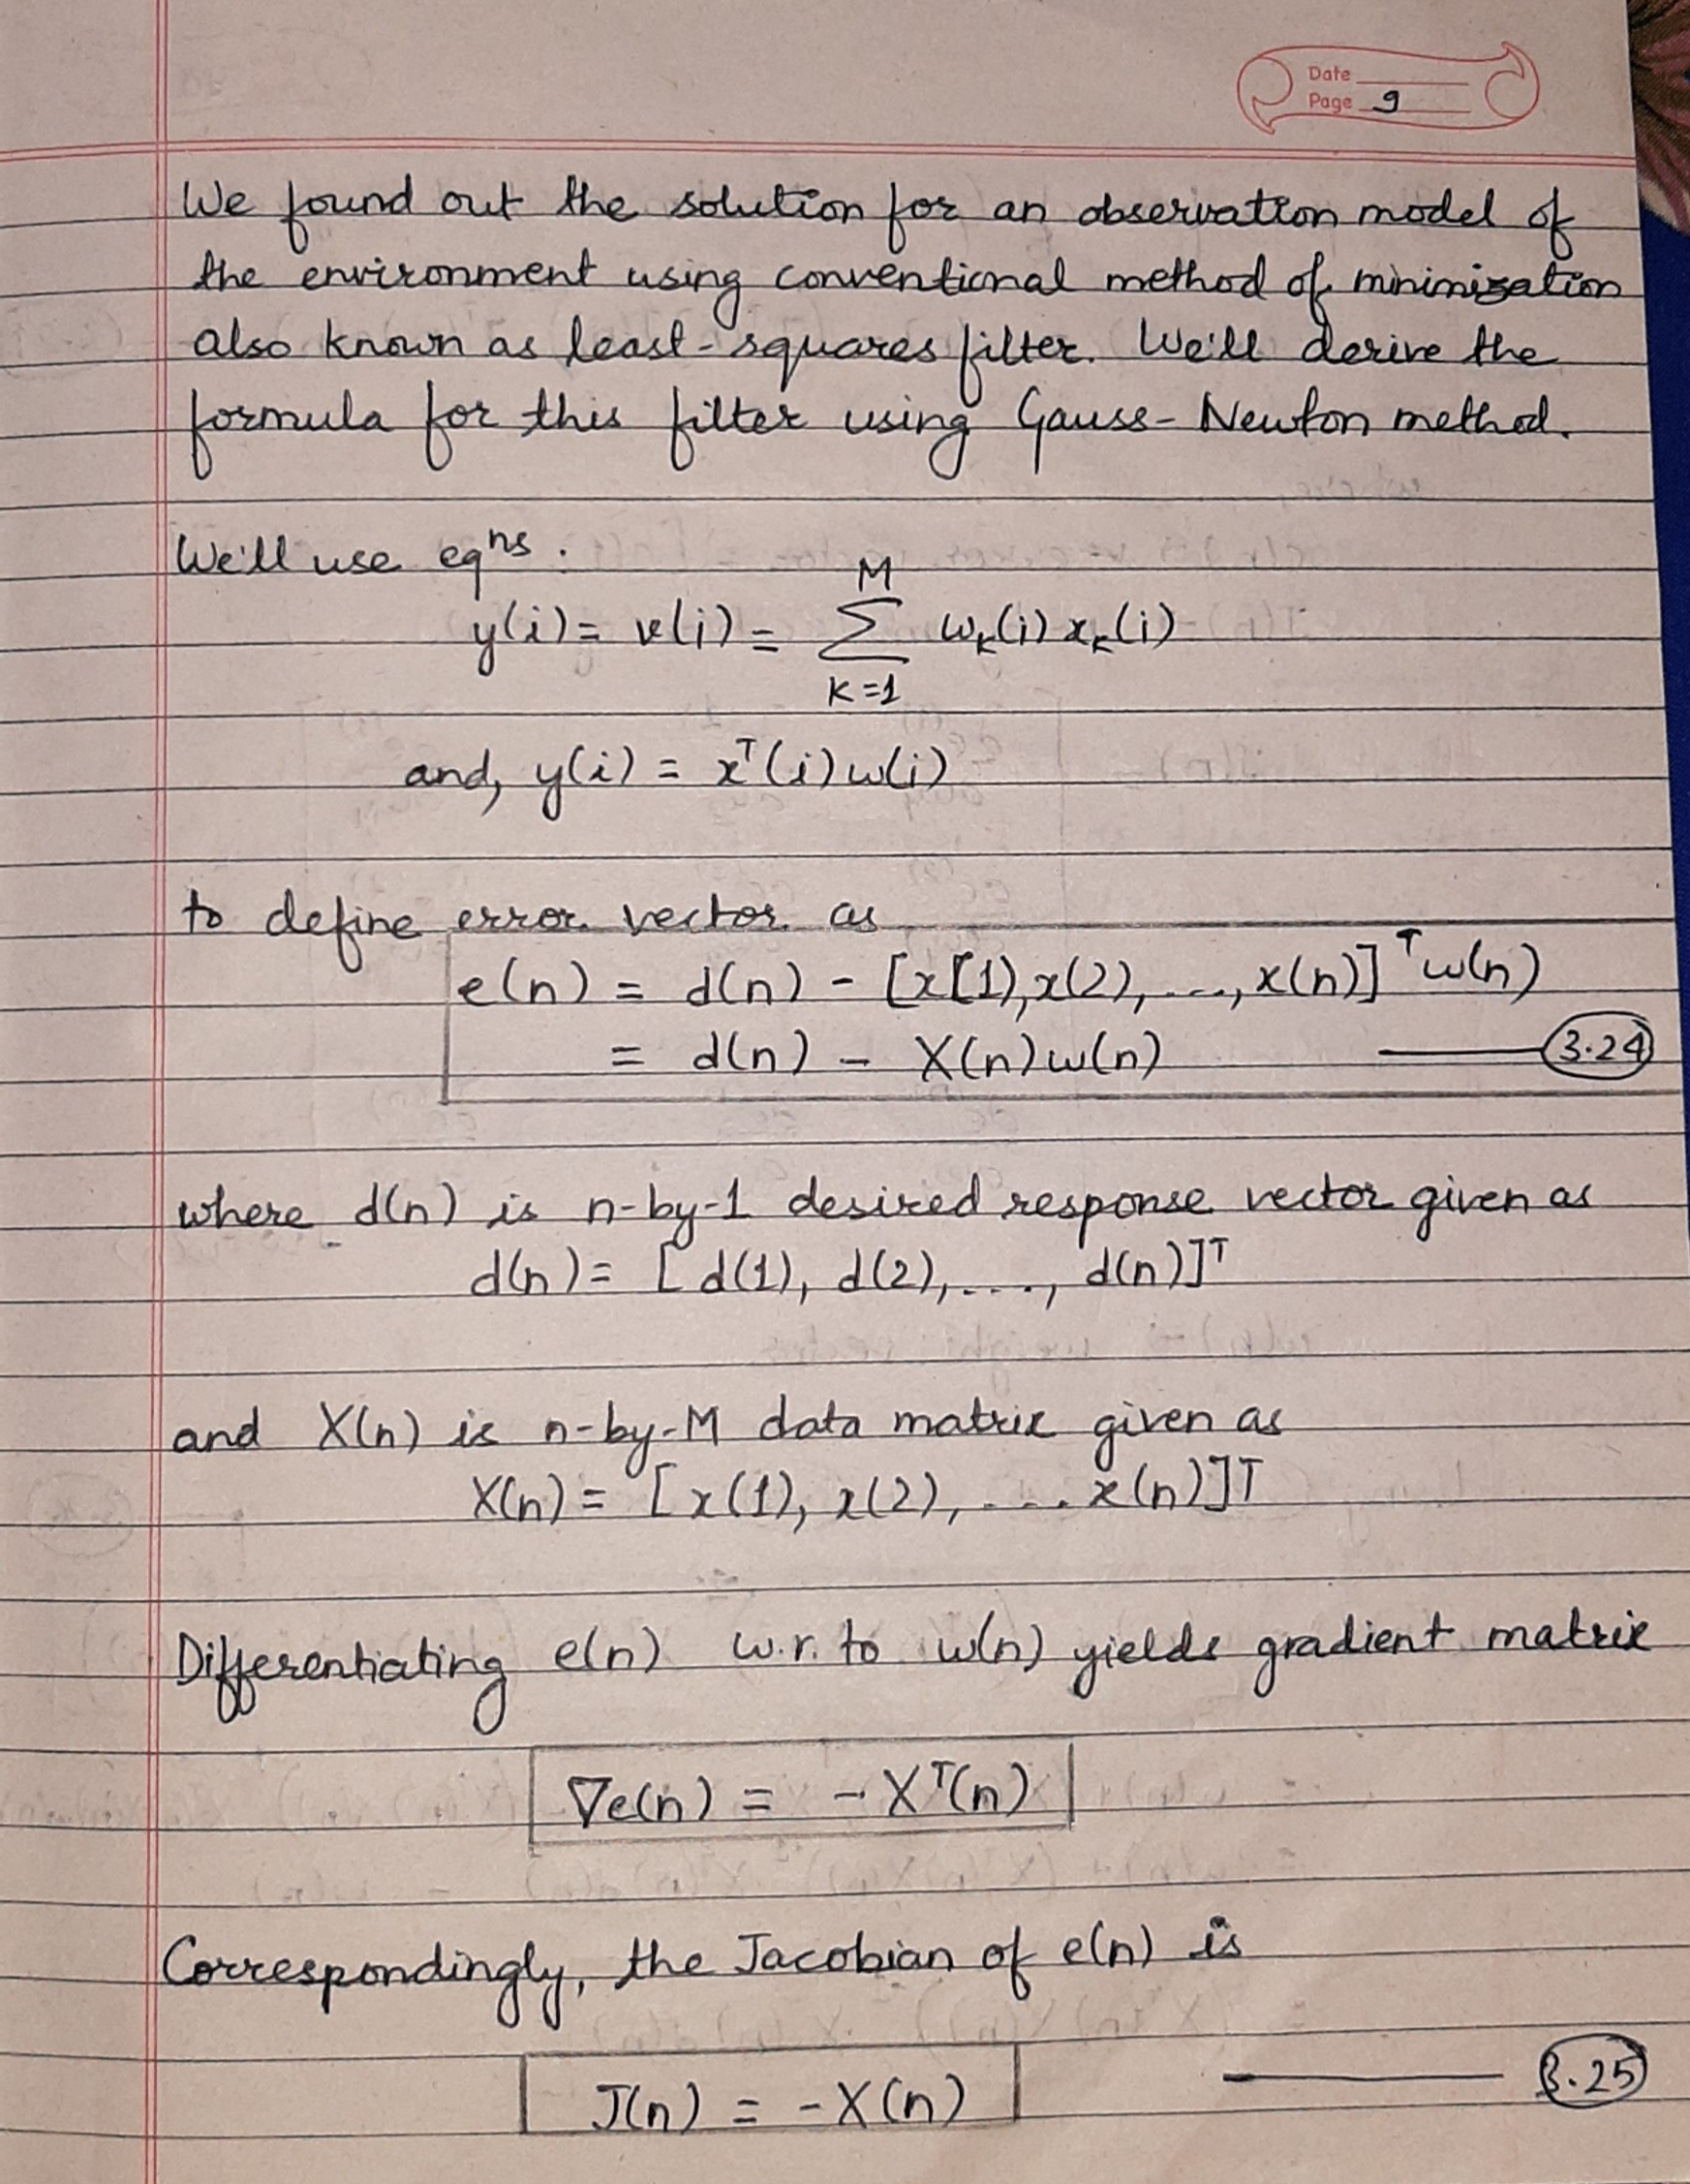 Date
Page 9
We found out the solution for an observation model of
the environment using conventional method of minimization
also known as least-squares filter. We'll derive the
formula for this filter using Gauss-Newton method.
We'll use eqⁿˢ.
y(i) = v(i) = Σ_{k=1}^{M} w_k(i) x_k(i)
and, y(i) = xᵀ(i)w(i)
to define error vector as
e(n) = d(n) - [x[1), x(2), ...., x(n)]ᵀ w(n)
= d(n) - X(n)w(n) —— 3.24
where d(n) is n-by-1 desired response vector given as
d(n) = [d(1), d(2), ...., d(n)]ᵀ
and X(n) is n-by-M data matrix given as
X(n) = [x(1), x(2), .... x(n)]ᵀ
Differentiating e(n) w.r. to w(n) yields gradient matrix
∇e(n) = -Xᵀ(n)
Correspondingly, the Jacobian of e(n) is
J(n) = -X(n) —— 3.25